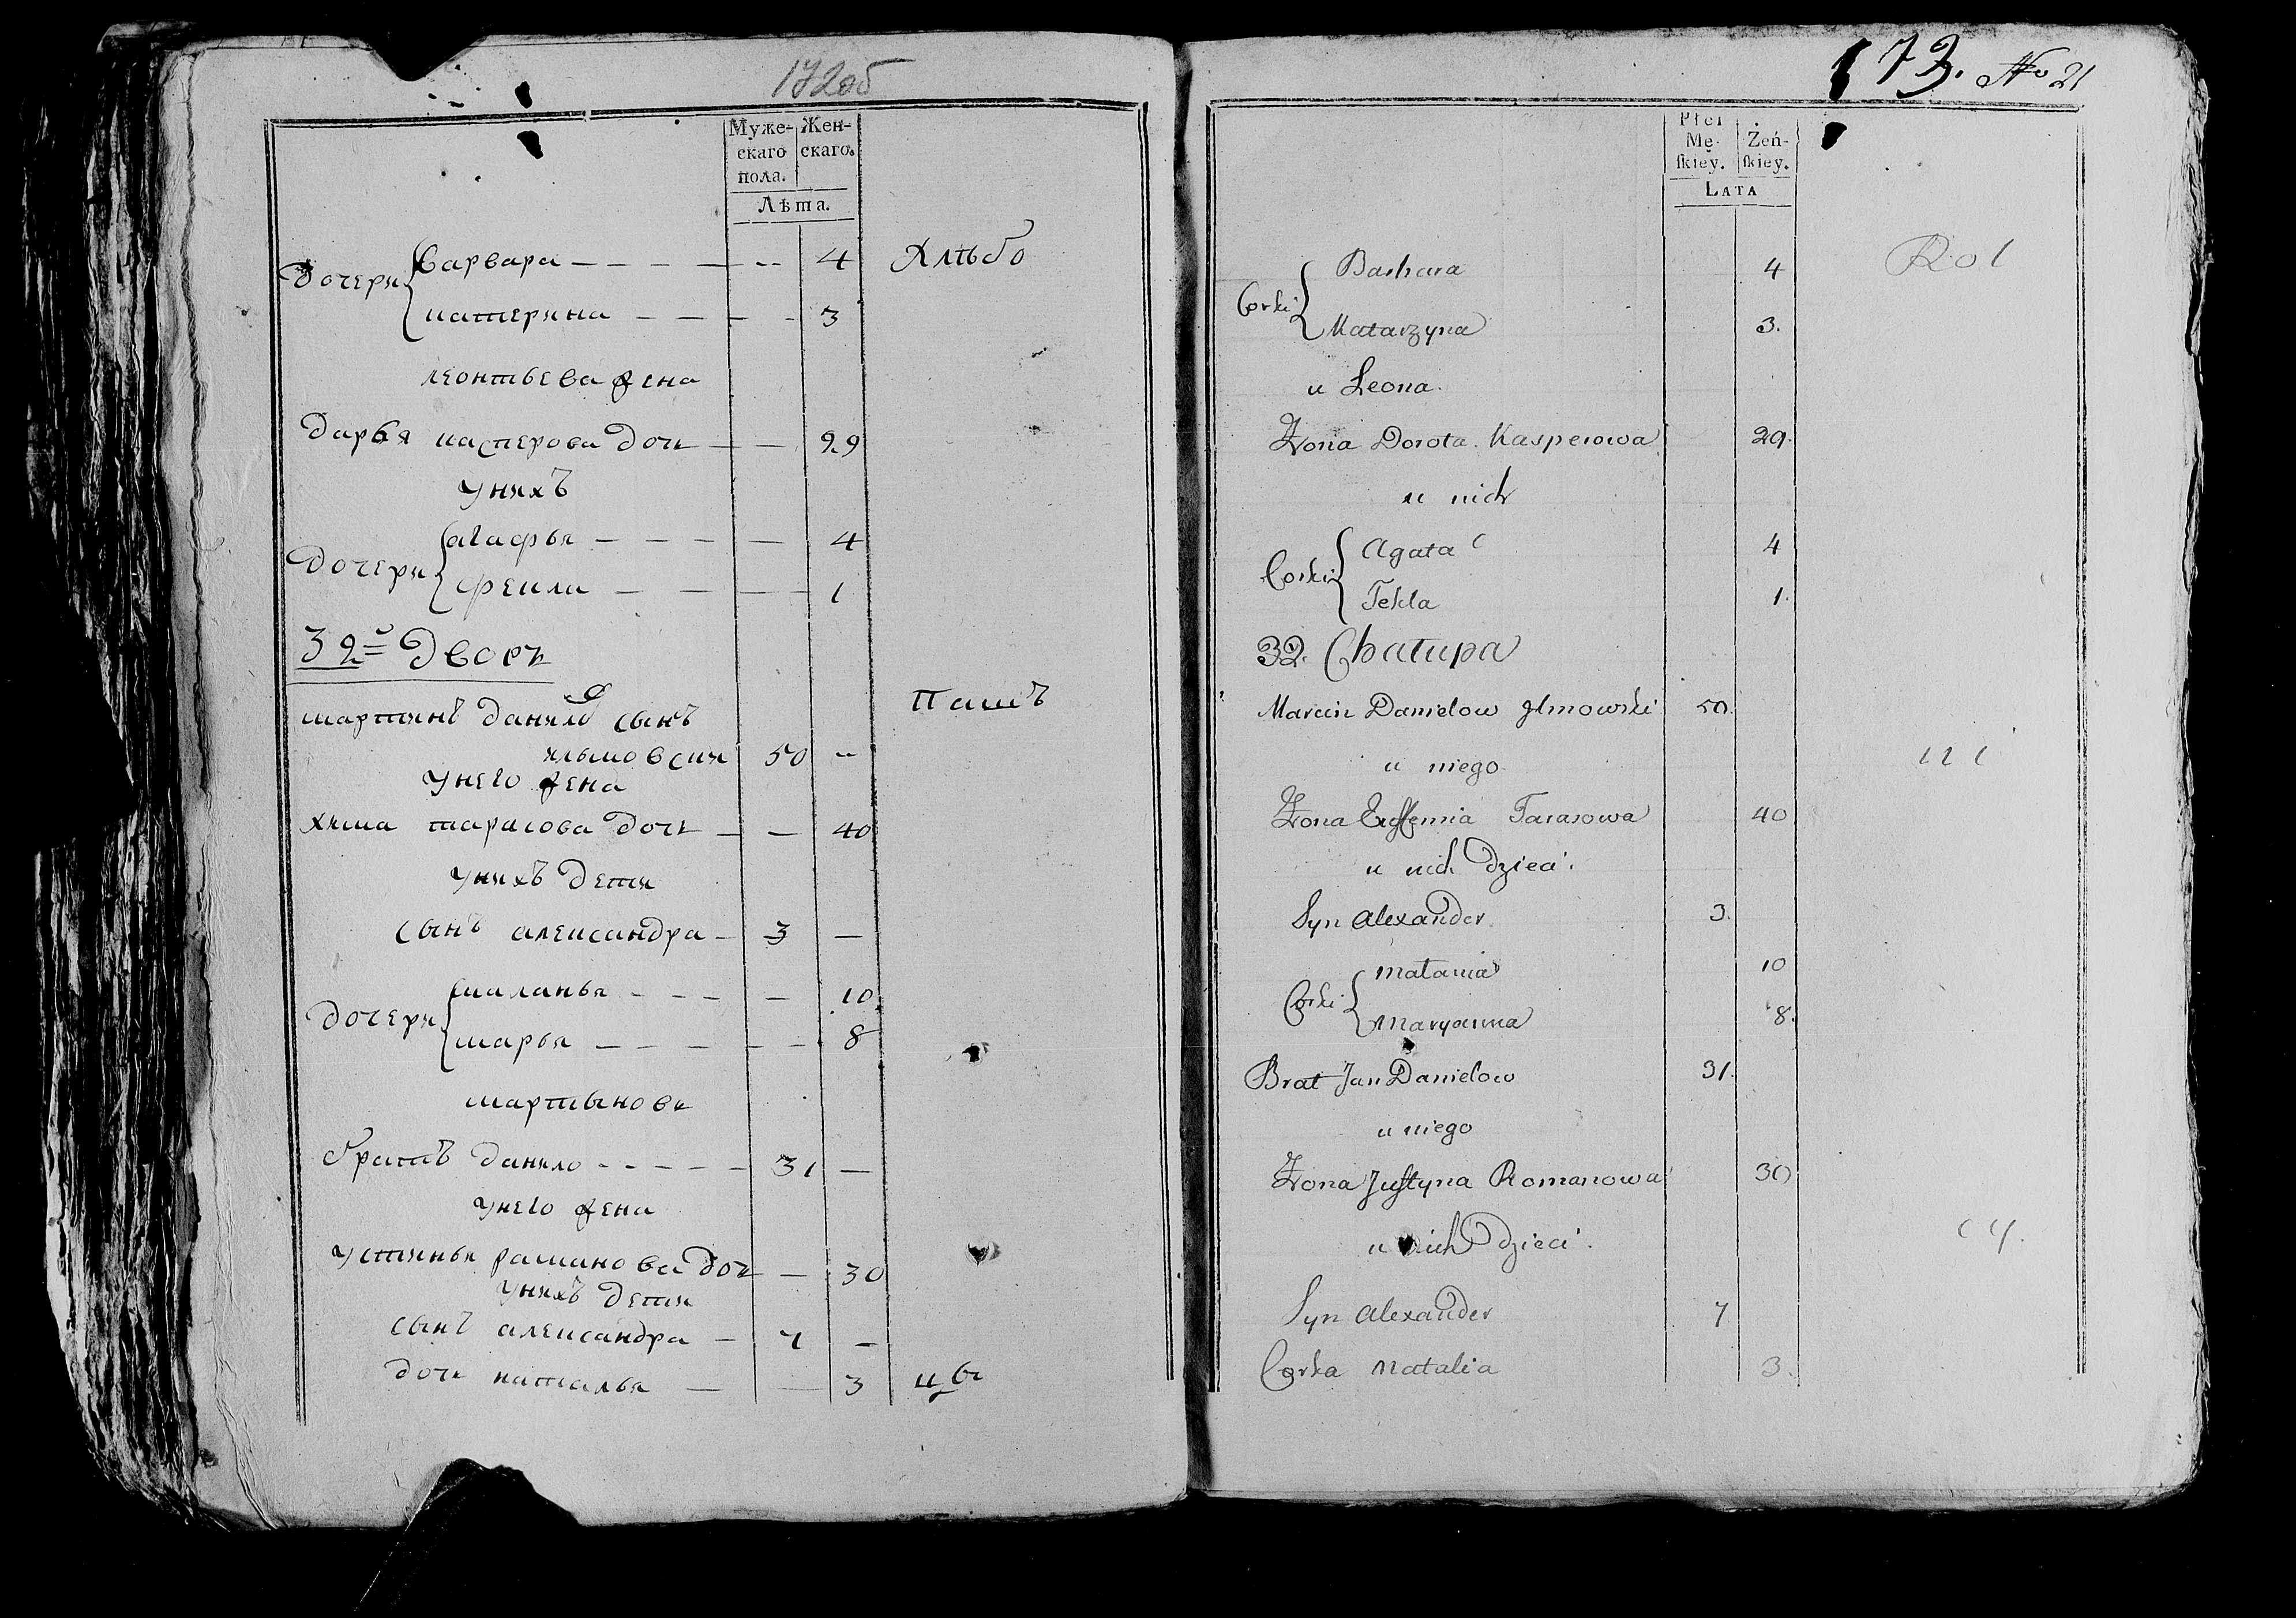 172об
Муже-
скаго
пола.
Жен-
скаго.
Лѣта.
Дочери
Варвара — — — — -- 4 Хлѣбо
катерина — — — - 3
леонтьева жена
дарья касперова дочь — — 29
у нихъ
Дочери
агафья — — — — 4
фекла — — — — 1
32й Дворъ
мартинъ данилов сынъ Пашъ
ильмовски 50 --
у него жена
хима тарасова дочь — — 40
у нихъ дети
сынъ александра — 3 —
Дочери
маланья - - - — 10
марья — — — - - 8
мартынова
братъ данило - - - - - 31 —
у него жена
устинья раманова доч — 30
у нихъ дети
сынъ александра — 7 —
дочь наталья — — 3 цы
173. No 21
Płci
Mę-
ſkiey.
Żeń-
ſkiey.
LATA
Corki
Barbara 4 Rol
Katarzyna 3.
u Leona
Zona Dorota Kasperowa 29.
u nich
Corki
Agata 4
Tekla 1.
32. Chałupa
Marcin Danielow Jlmowski 50.
u niego ni
Zona Eufemia Tarasowa 40
u nich dzieci.
Syn Alexander 3.
Corki
Małania 10
Maryanna 8.
Brat Jan Danielow 31.
u niego
Zona Justyna Romanowa 30
u nich dzieci. cy.
Syn Alexander 7
Corka Natalia 3.